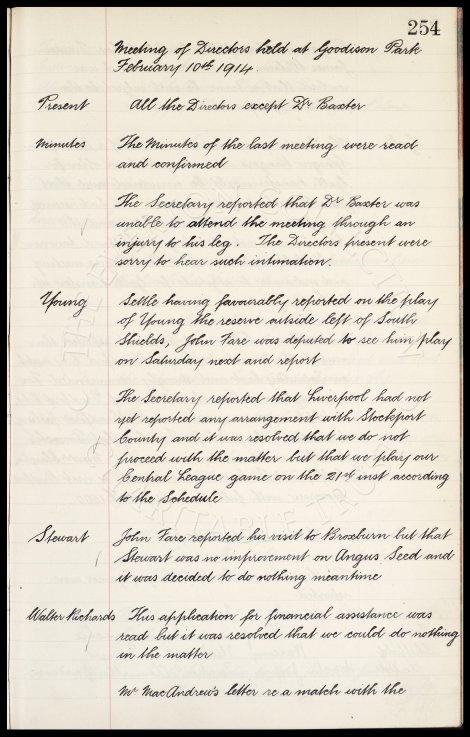 254
Meeting of Directors held at Goodison Park
February 10th 1914.
Present All the Directors except Dr Baxter
Minutes The Minutes of the last meeting were read
and confirmed
The Secretary reported that Dr Baxter was
unable to attend the meeting through an
injury to his leg. The Directors present were
sorry to hear such intimation.
Young Settle having favourably reported on the play
of Young the reserve outside left of South
Shields, John Fare was deputed to see him play
on Saturday next and report
The Secretary reported that Liverpool had not
yet reported any arrangement with Stockport
County and it was resolved that we do not
proceed with the matter but that we play our
Central League game on the 21st inst according
to the Schedule
Stewart John Fare reported his visit to Broxburn but that
Stewart was no improvement on Angus Seed and
it was decided to do nothing meantime
Walter Richards This application for financial assistance was
read but it was resolved that we could do nothing
in the matter
Mr MacAndrew's letter re a match with the